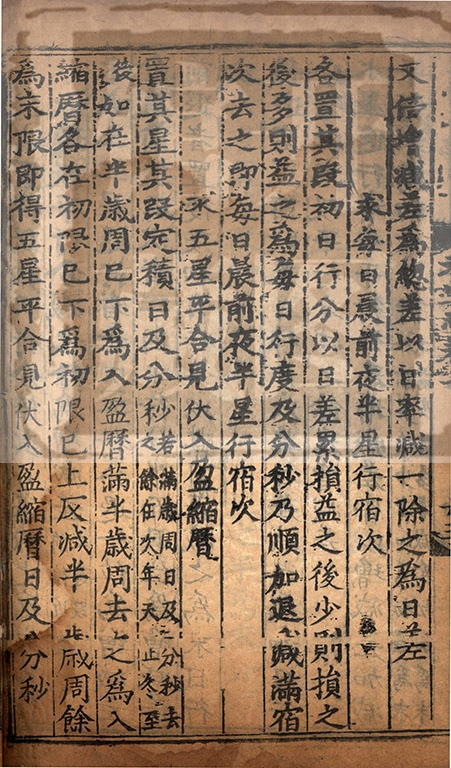 又倍增減差爲緫差以日率減一除之爲日差
求每日晨前夜半星行宿次
各置其段初日行分以日差累損益之後少則損之
後多則益之爲每日行度及分秒乃順加退減滿宿
次去之即每日晨前夜半星行宿次
求五星平合見伏入盈縮曆
置其星其段定積日及分秒若滿歲周日及分秒去之餘在次年天正冬至
後如在半歲周已下爲入盈曆滿半歲周去之爲入
縮曆各在初限已下爲初限已上反減半歲周餘
爲末限即得五星平合見伏入盈縮曆日及分秒